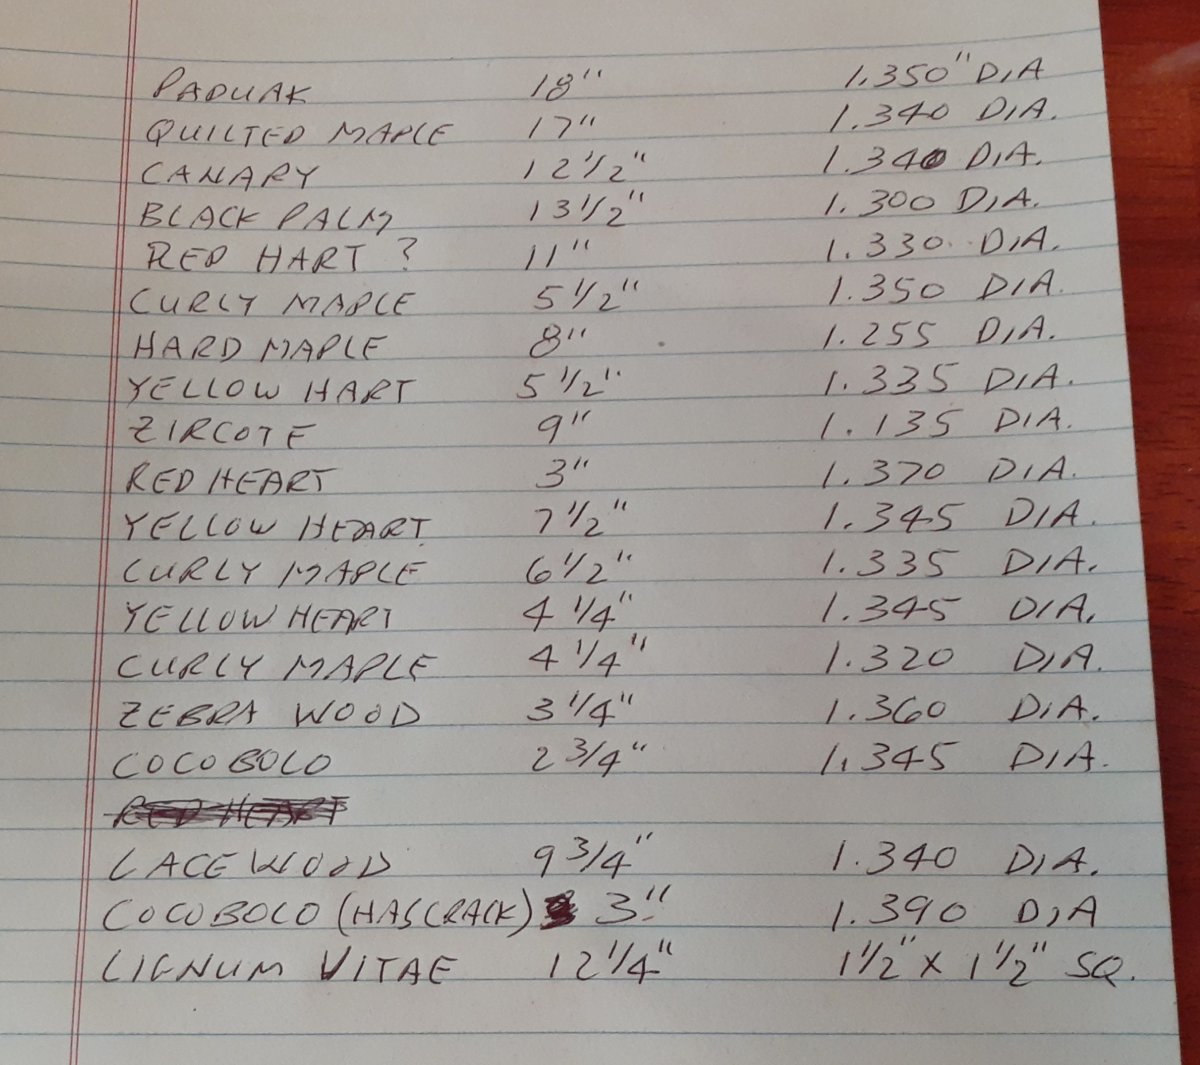 PADUAK 18" 1.350" DIA
QUILTED MAPLE 17" 1.340 DIA.
CANARY 12 1/2" 1.340 DIA.
BLACK PALM 13 1/2" 1.300 DIA.
RED HART ? 11" 1.330 DIA.
CURLY MAPLE 5 1/2" 1.350 DIA.
HARD MAPLE 8" 1.255 DIA.
YELLOW HART 5 1/2" 1.335 DIA.
ZIRCOTE 9" 1.135 DIA.
RED HEART 3" 1.370 DIA.
YELLOW HEART 7 1/2" 1.345 DIA.
CURLY MAPLE 6 1/2" 1.335 DIA.
YELLOW HEART 4 1/4" 1.345 DIA.
CURLY MAPLE 4 1/4" 1.320 DIA.
ZEBRA WOOD 3 1/4" 1.360 DIA.
COCOBOLO 2 3/4" 1.345 DIA.
RED HEART
LACE WOOD 9 3/4" 1.340 DIA.
COCOBOLO (HAS CRACK) 3" 1.390 DIA
LIGNUM VITAE 12 1/4" 1 1/2" X 1 1/2" SQ.